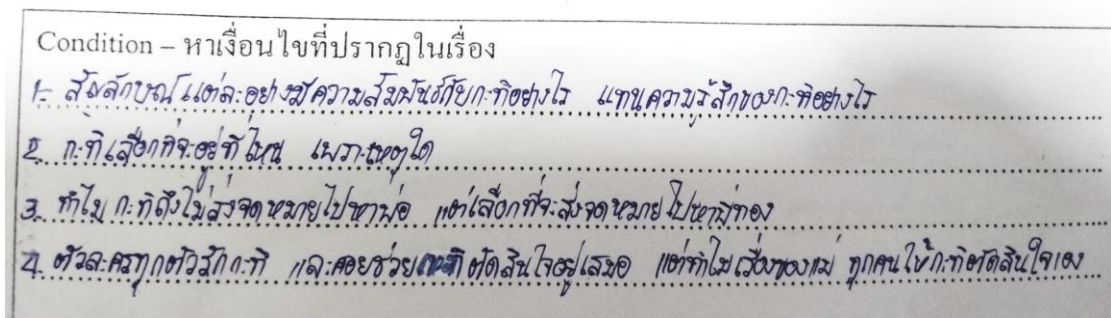 Condition – หาเงื่อนไขที่ปรากฏในเรื่อง
1. สัญลักษณ์แต่ละอย่างมีความสัมพันธ์กับกะทิอย่างไร แทนความรู้สึกของกะทิอย่างไร
2. กะทิเลือกที่จะอยู่ที่ไหน เพราะเหตุใด
3. ทำไมกะทิถึงไม่ส่งจดหมายไปหาพ่อ แต่เลือกที่จะส่งจดหมายไปหาพี่ทอง
4. ตัวละครทุกตัวรักกะทิ และคอยช่วยกะทิตัดสินใจอยู่เสมอ แต่ทำไมเรื่องของแม่ ทุกคนให้กะทิตัดสินใจเอง